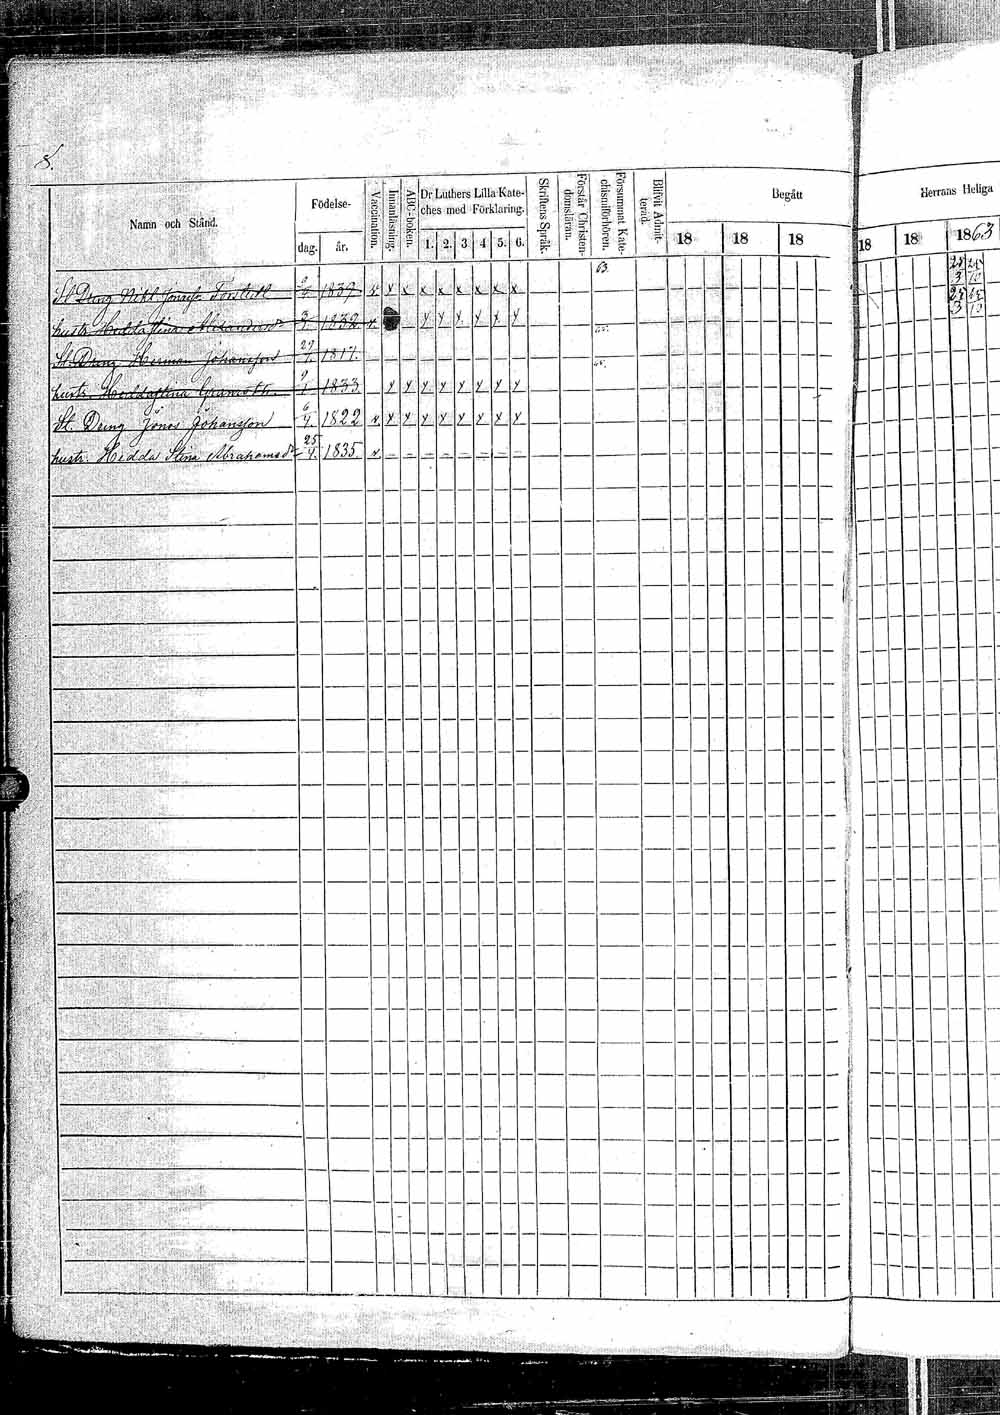 8.
Namn och Stånd.
Födelse-
dag. år.
Vaccination.
Innanläsning.
ABC-boken.
Dr Luthers Lilla Kate-
ches med Förklaring.
1. 2. 3 4 5. 6.
Skriftens Språk.
Förstår Christen-
domsläran.
Försummat Kate-
chismiförhören.
Blifvit Admit-
terad.
Begått
18 18 18
Herrans Heliga
18 18 1863
63.
St Dreng Nikl. 1839 v. x x x x x x x x
25 3 25 10
hustr. Hedda Stina 3 1832 v. y y y y y y
25 3 25 10
St. Dreng Herman Johansson 29 1817.
65.
hustr. Hedda Stina 9 1 1833 y y y y y y y y
65.
St. Dreng Jonas Johansson 6 4. 1822 v. y y y y y y y y
hustr. Hedda Stina Abrahamsdr 25 4. 1835 v.